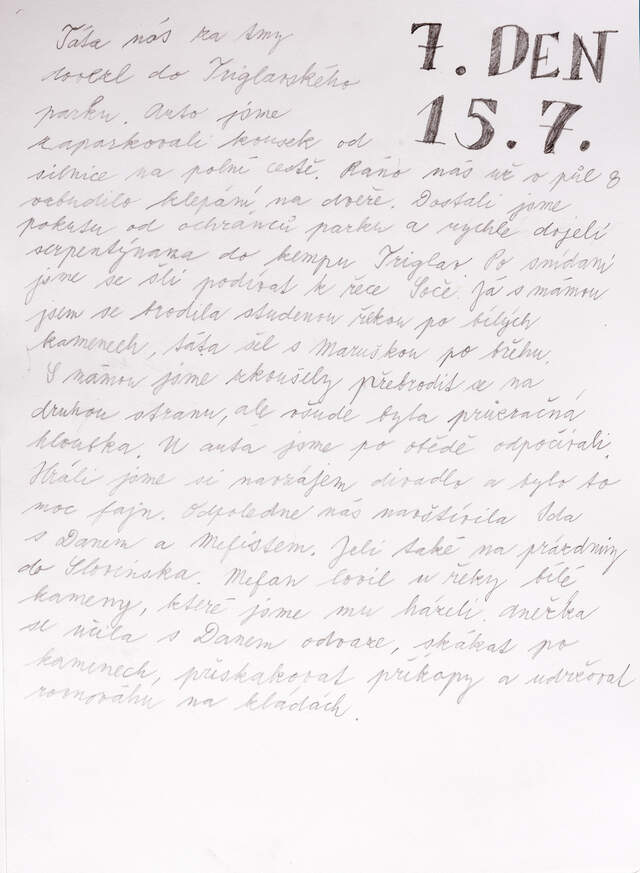 7. DEN
15. 7.
Táta nás za tmy
dovezl do Triglavského
parku. Auto jsme
zaparkovali kousek od
silnice na polní cestě. Ráno nás už v půl 8
vzbudilo klepání na dveře. Dostali jsme
pokutu od ochránců parku a rychle dojeli
serpentýnama do kempu Triglav. Po snídani
jsme se šli podívat k řece Soče. Já s mámou
jsem se brodila studenou řekou po bílých
kamenech, táta šel s Maruškou po břehu.
S mámou jsme zkoušely přebrodit se na
druhou stranu, ale všude byla průzračná
hloubka. U auta jsme po obědě odpočívali.
Hráli jsme si navzájem divadlo a bylo to
moc fajn. Odpoledne nás navštívila Ida
s Danem a Mefistem. Jeli také na prázdniny
do Slovinska. Mefan lovil u řeky bílé
kameny, které jsme mu házeli. Anežka
se učila s Danem odvaze, skákat po
kamenech, přeskakovat příkopy a udržovat
rovnováhu na kládách.